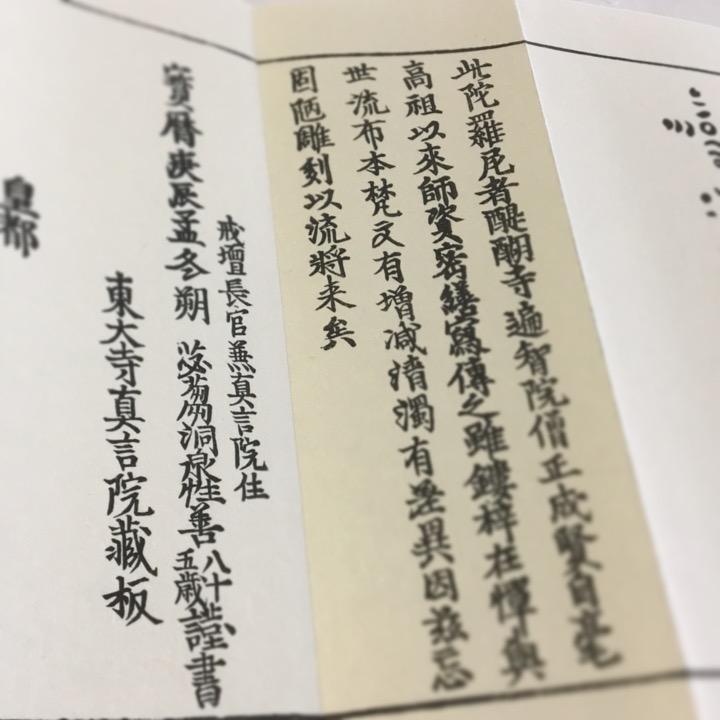 此陀羅尼者醍醐寺遍智院僧正成賢自毫
高祖以來師資密繕寫傳之雖鏤梓在憚與
世流布本梵文有増减清濁有差異因茲忘
固陋雕刻以流將来矣
戒壇長官兼真言院住
寳暦庚辰孟冬朔 苾蒭洞泉性善八十五歳謹書
東大寺真言院藏板
皇都